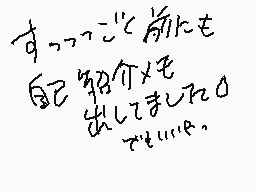 すっっっごく前にも
自己紹介メモ
出してました0
でもいいや。